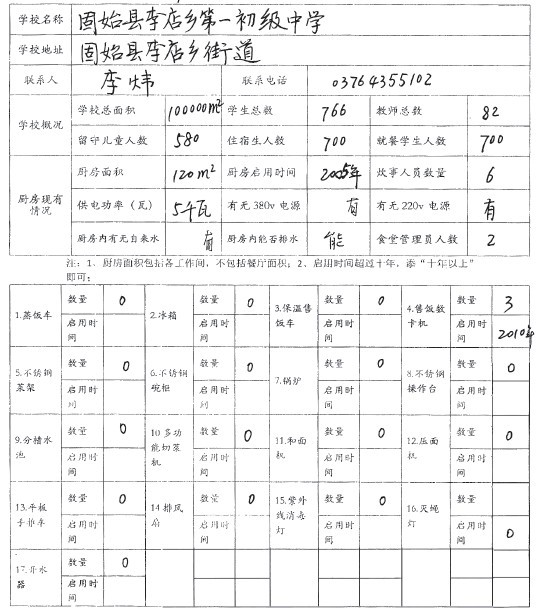 学校名称 固始县李店乡第一初级中学
学校地址 固始县李店乡街道
联系人 李炜 联系电话 03764355102
学校概况 学校总面积 100000m² 学生总数 766 教师总数 82
留守儿童人数 580 住宿生人数 700 就餐学生人数 700
厨房现有情况 厨房面积 120m² 厨房启用时间 2005年 炊事人员数量 6
供电功率（瓦） 5千瓦 有无 380v 电源 有 有无 220v 电源 有
厨房内有无自来水 有 厨房内能否排水 能 食堂管理员人数 2
注：1、厨房面积包括各工作间，不包括餐厅面积；2、启用时间超过十年，添“十年以上”
即可；
1.蒸饭车 数量 0 2.冰箱 数量 0 3.保温售饭车 数量 0 4.售饭数卡机 数量 3
启用时间 启用时间 启用时间 启用时间 2010年
5.不锈钢菜架 数量 0 6.不锈钢碗柜 数量 0 7.锅炉 数量 0 8.不锈钢操作台 数量 0
启用时间 启用时间 启用时间 启用时间
9.分槽水池 数量 0 10多功能切菜机 数量 0 11.和面机 数量 0 12.压面机 数量 0
启用时间 启用时间 启用时间 启用时间
13.平板手推车 数量 0 14排风扇 数量 0 15.紫外线消毒灯 数量 0 16.灭绳灯 数量
启用时间 启用时间 启用时间 启用时间 0
17.开水器 数量 0
启用时间